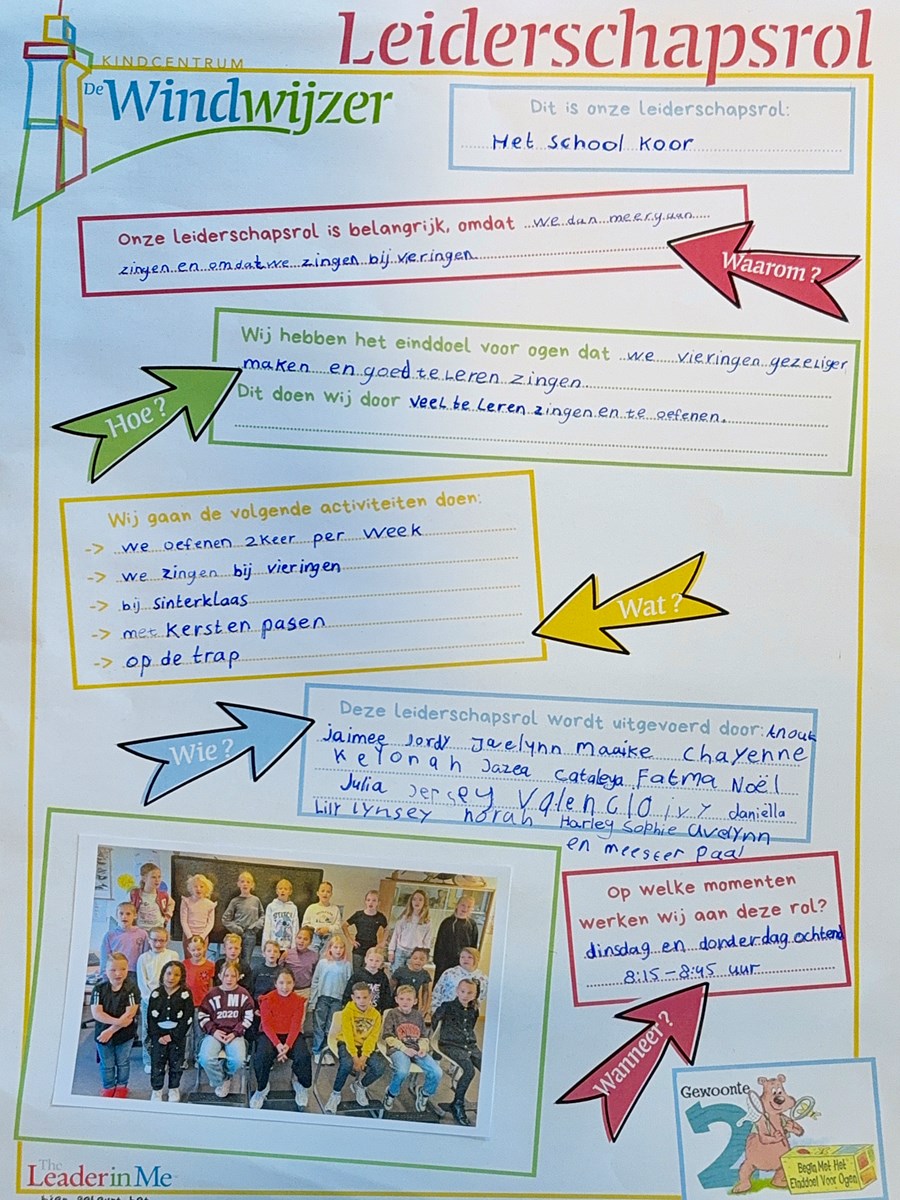 Leiderschapsrol
KINDCENTRUM
De Windwijzer
Dit is onze leiderschapsrol:
Het school koor
Onze leiderschapsrol is belangrijk, omdat we dan meer
zingen en omdat we zingen bij vieringen
Waarom?
Wij hebben het einddoel voor ogen dat we vieringen gezeliger
maken en goed te Leren zingen
Dit doen wij door veel te Leren zingen en te oefenen.
Hoe?
Wij gaan de volgende activiteiten doen:
-> we oefenen 2 keer per week
-> we zingen bij vieringen
-> bij Sinterklaas
-> met kerst en pasen
-> op de trap
Wat?
Wie?
Deze leiderschapsrol wordt uitgevoerd door: Anouk
Jaimee Jordy Jaelynn Maaike Chayenne
Keyonah Jazea Cataleya Fatma Noël
Julia Jersey daniëlla
Lily Lynsey norah Harley Sophie Avelynn
en meester
Op welke momenten
werken wij aan deze rol?
dinsdag en donderdag ochtend
8:15-8:45 uur
Wanneer?
IT MY
2020
Gewoonte
2
Begin Met Het
Einddoel Voor Ogen
The
Leader in Me